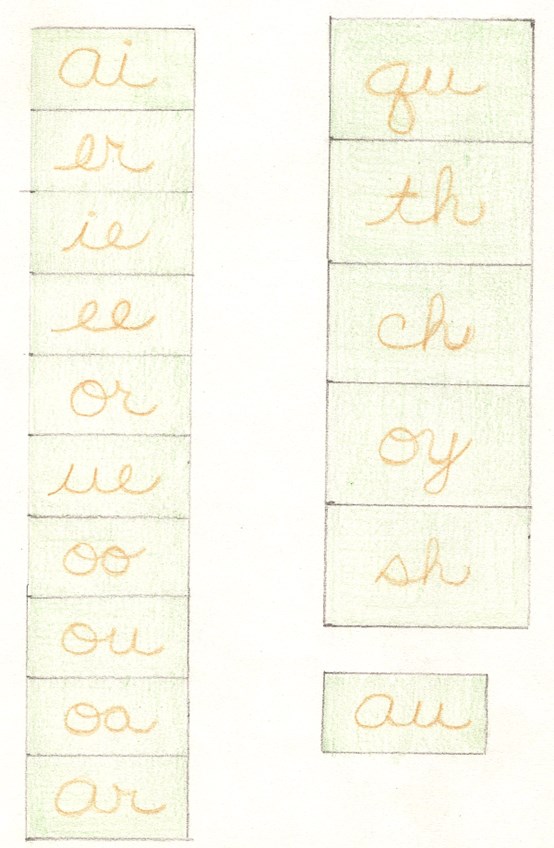 ai
er
ie
ee
or
ue
oo
ou
oa
ar
qu
th
ch
oy
sh
au